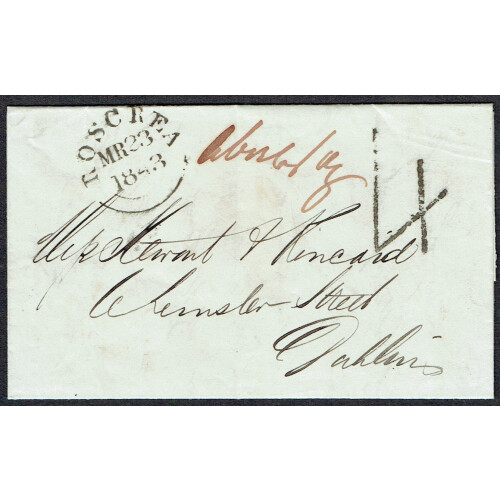 ROSCREA
MR23
1843
4
Messrs Stewart & Kincaid
Leinster Street
Dublin